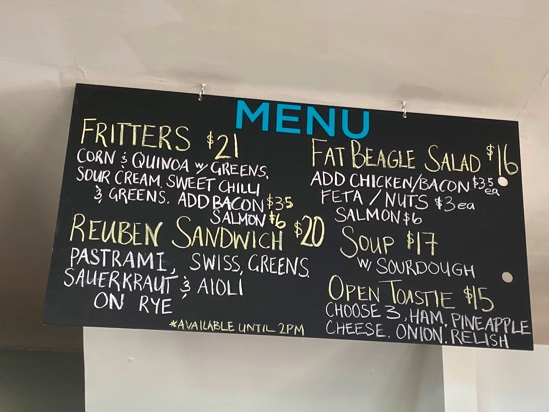 MENU
FRITTERS $21
CORN & QUINOA w/ GREENS,
SOUR CREAM, SWEET CHILLI
& GREENS. ADD BACON $35
SALMON $6
REUBEN SANDWICH $20
PASTRAMI, SWISS, GREENS
SAUERKRAUT & AIOLI
ON RYE
*AVAILABLE UNTIL 2PM
FAT BEAGLE SALAD $16
ADD CHICKEN/BACON $35 ea
FETA / NUTS $3 ea
SALMON $6
SOUP $17
W/ SOURDOUGH
OPEN TOASTIE $15
CHOOSE 3, HAM, PINEAPPLE
CHEESE, ONION, RELISH